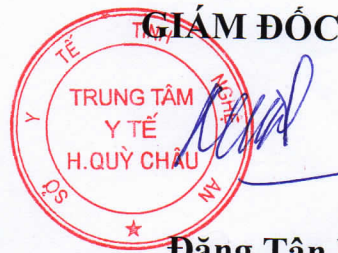 GIÁM ĐỐC
SỞ Y TẾ TỈNH NGHỆ AN
TRUNG TÂM
Y TẾ
H.QUỲ CHÂU
Đặng Tân